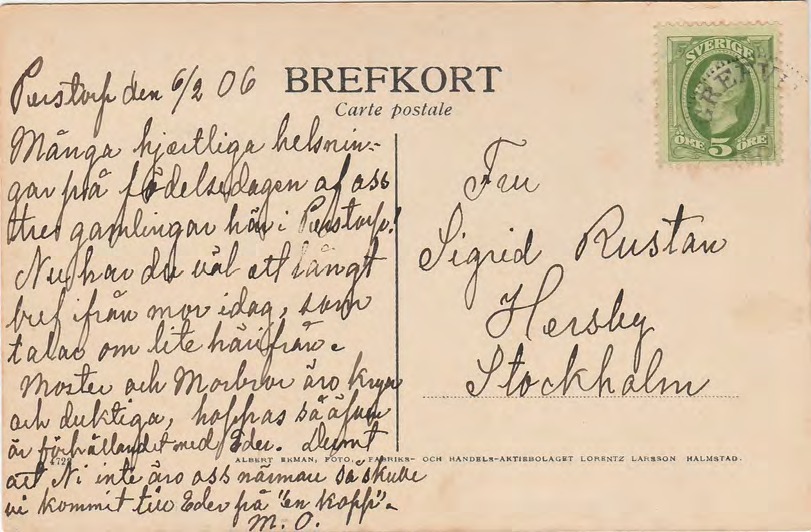 BREFKORT
Carte postale
SVERIGE
ÖRE 5 ÖRE
Perstorp den 6/2 06
Många hjertliga helsnin-
gar på födelsedagen af oss
tre gamlingar här i Perstorp!
Nu har du väl ett långt
bref ifrån mor idag, som
talar om lite härifrån.
Moster och Morbror äro krya
och duktiga, hoppas så äfven
är förhållandet med Eder. Dumt
att Ni inte äro oss närmare så skulle
vi kommit till Eder på "en kopp".
M. O.
Fru
Sigrid Rustan
Hersby
Stockholm
4728
ALBERT EKMAN, FOTO. FABRIKS- OCH HANDELS-AKTIEBOLAGET LORENTZ LARSSON HALMSTAD.